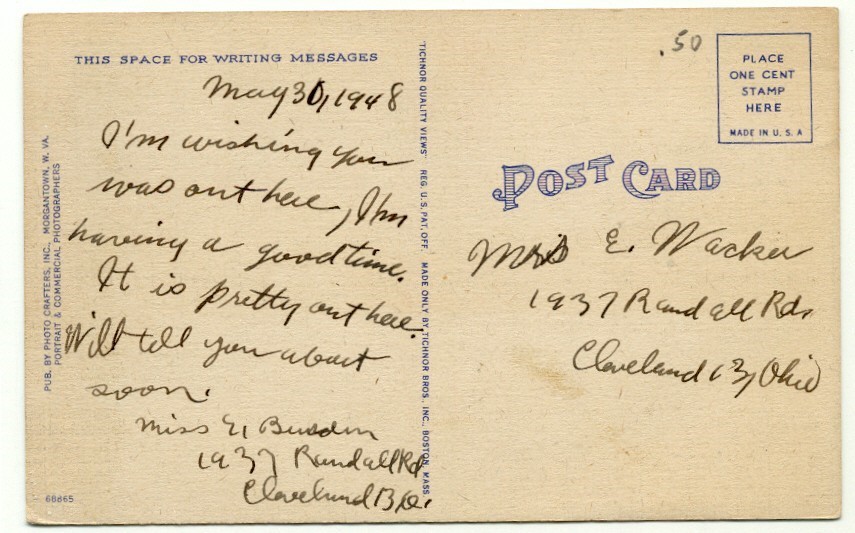 THIS SPACE FOR WRITING MESSAGES
May 30, 1948
I'm wishing you
was out here, I'm
having a good time.
It is pretty out here.
Will tell you about
soon.
Miss E,
1937 Randall Rd
Cleveland 13, O.
PUB. BY PHOTO CRAFTERS, INC., MORGANTOWN, W. VA.
PORTRAIT & COMMERCIAL PHOTOGRAPHERS
68865
"TICHNOR QUALITY VIEWS" REG. U. S. PAT. OFF. MADE ONLY BY TICHNOR BROS., INC., BOSTON, MASS.
.50
PLACE
ONE CENT
STAMP
HERE
MADE IN U. S. A
POST CARD
Mrs E. Wacker
1937 Randall Rd.
Cleveland 13, Ohio